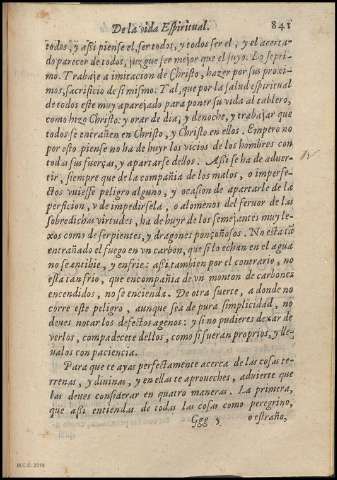 De la vida Espiritual. 841
todos, y assi piense el, ser todos, y todos ser el; y el acerta-
do parecer de todos, juzgue ser mejor que el suyo. Lo sepri-
mo. Trabaje a imitacion de Christo, hazer por sus proxi-
mos, sacrificio de si mismo: Tal, que por la salud espiritual
de todos este muy aparejado para poner su vida al tablero,
como hizo Christo: y orar de dia, y de noche, y trabajar que
todos se encrasten en Christo, y Christo en ellos. Empero no
por esto piense no ha de huyr los vicios de los hombres con
toda sus fuerças, y apartarse dellos. Assi se ha de aduer-
tir, siempre que de la compañia de los malos, o imperfe-
ctos vuiesse peligro alguno, y ocasion de apartarle de la
perficion, v de impedirsela, o alomenos del feruor de las
sobredichas virtudes, ha de huyr de los semejantes muy le-
xos como de serpientes, y dragones ponçoñosos. No esta tā
entrañado el fuego en vn carbon, que si lo echan en el agua
no se entibie, y enfrie: assi tambien por el contrario, no
esta tan frio, que en compañia de vn monton de carbones
encendidos, no se encienda. De otra suerte, a donde no
corre este peligro, aunque sea de pura simplicidad, no
deues notar los defectos agenos: y si no pudieres dexar de
verlos, compadecete dellos, como si fueran proprios, y lle-
ualos con paciencia.
Para que te ayas perfectamente acerca de las cosas te-
rrenas, y diuinas, y en ellas te aproueches, aduierte que
las deues considerar en quatro maneras. La primera,
que assi entiendas de todas las cosas como peregrino,
Ggg 5 o estraño,
M.C.D. 2018